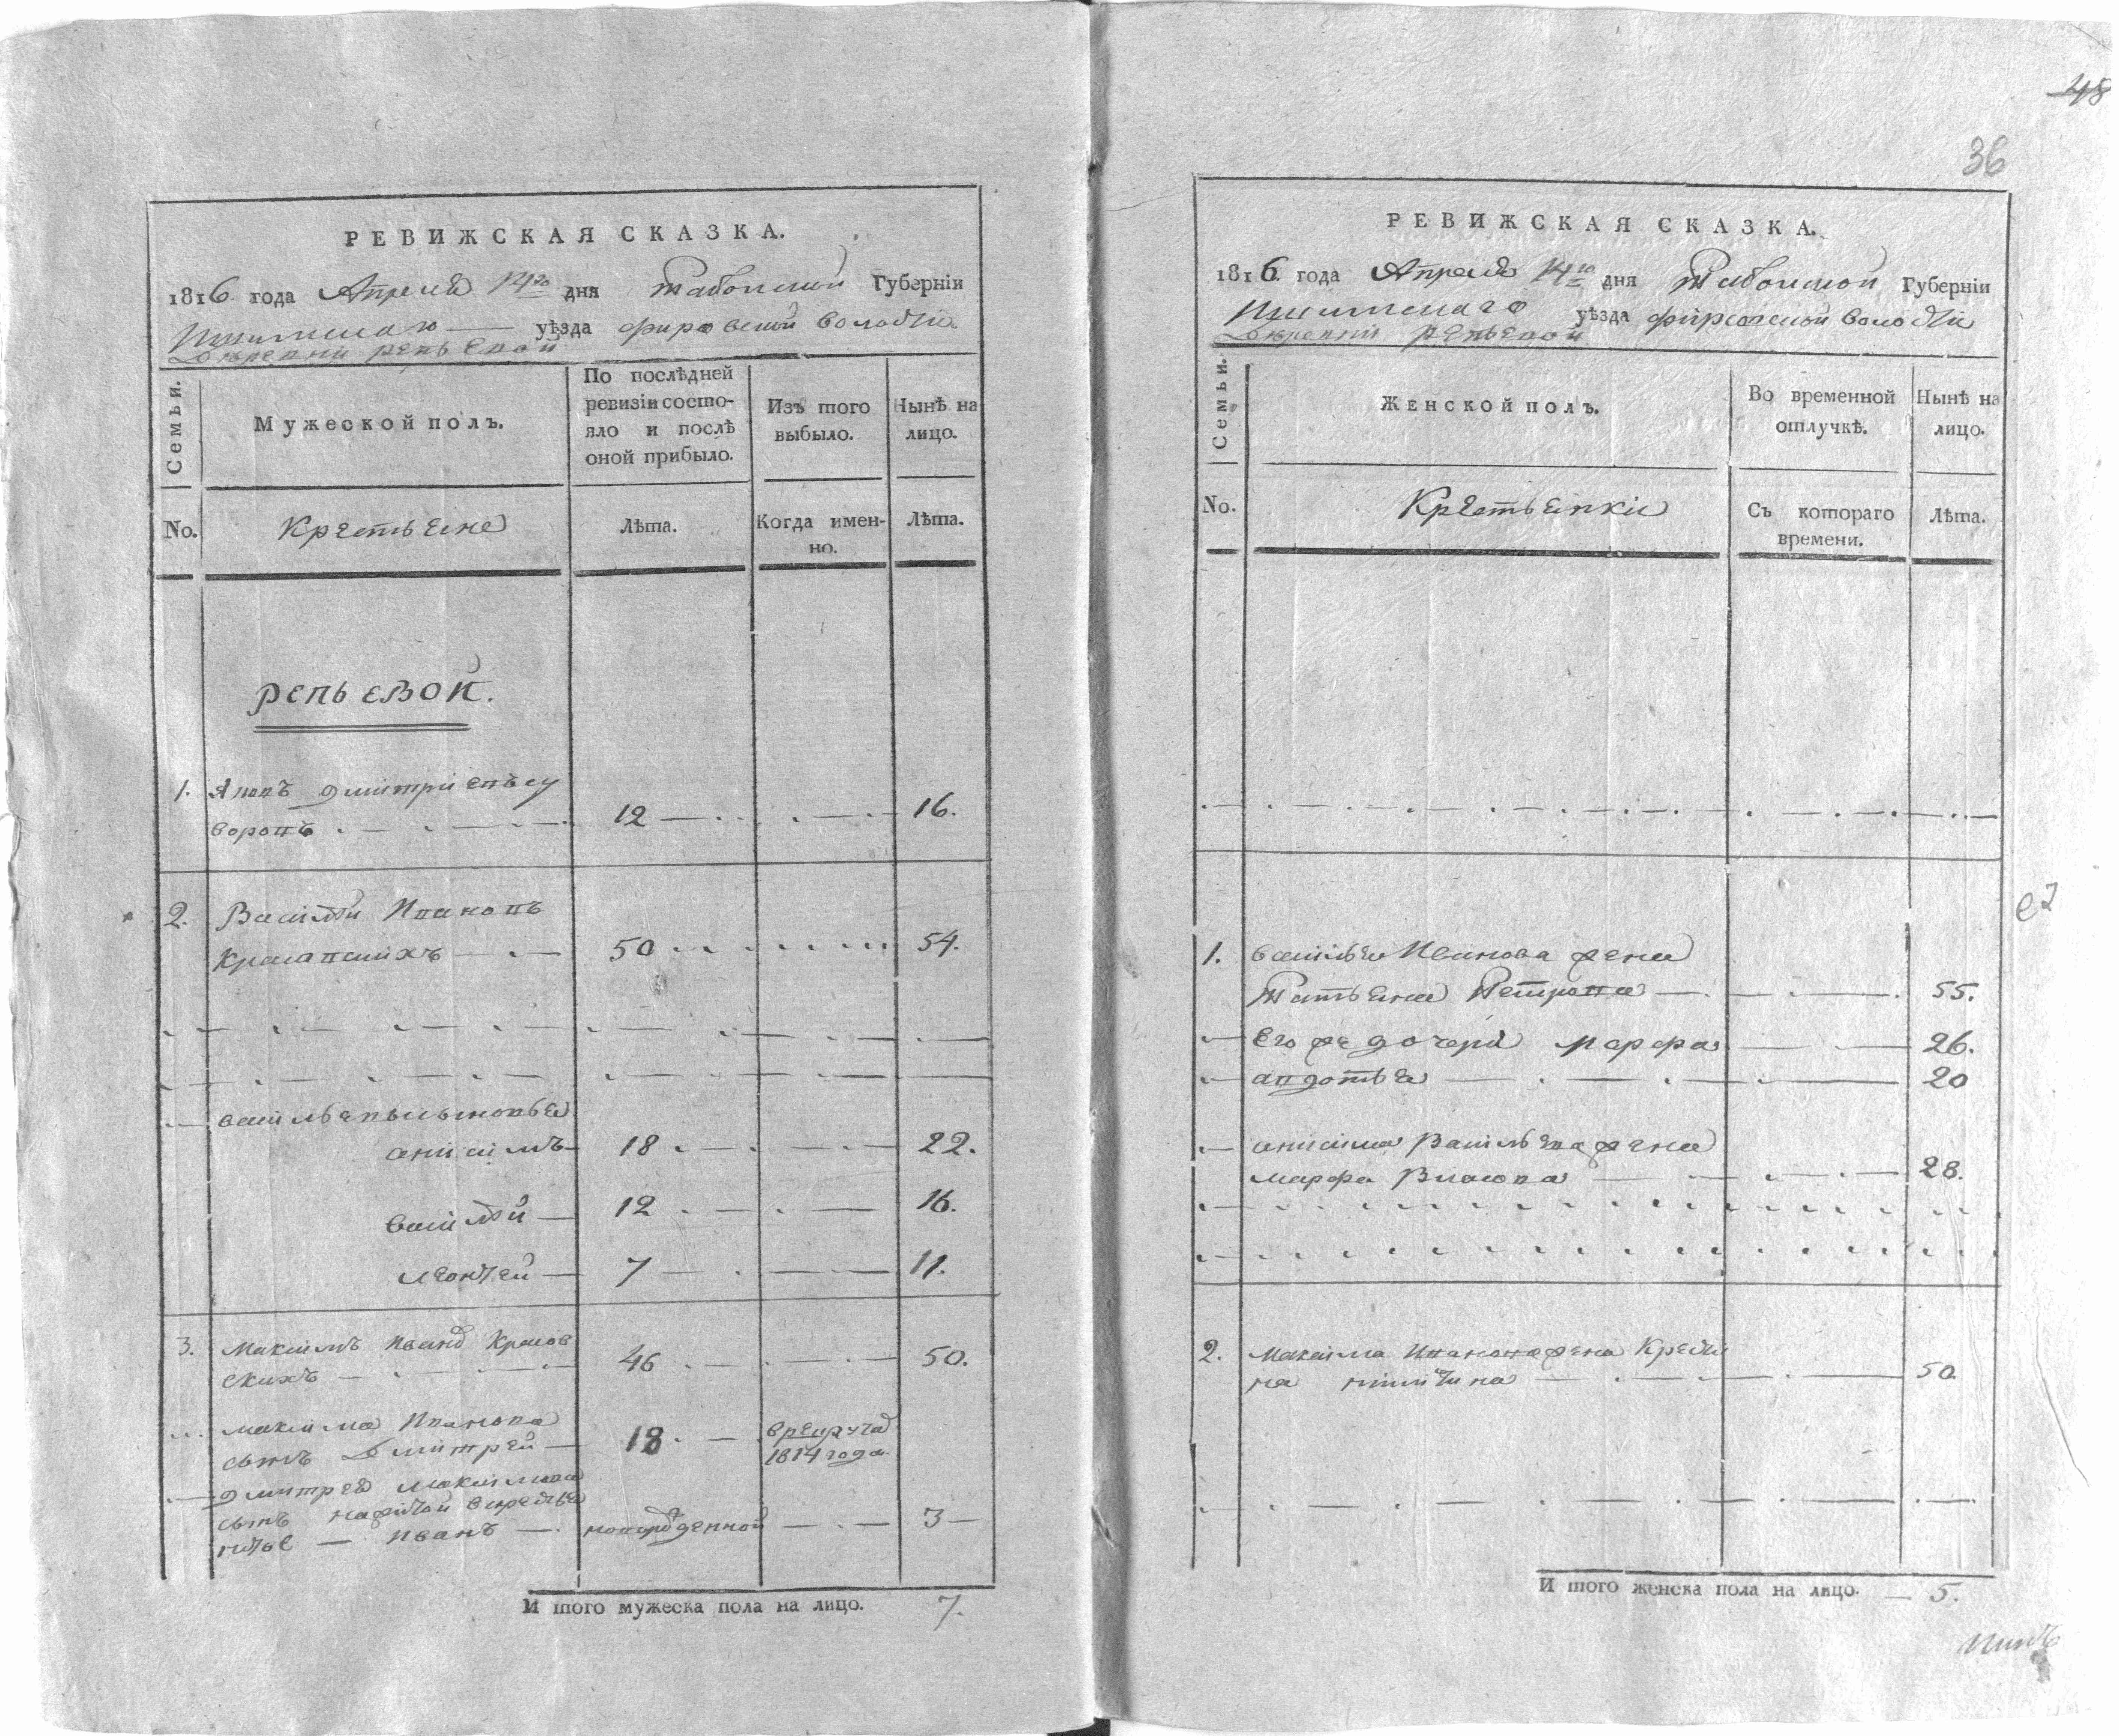 РЕВИЖСКАЯ СКАЗКА.
1816 года Апреля 14го дня Таболской Губернiи
Ишимскаго уѣзда фировской волости
Деревни репьевой
Семьи.
Мужеской полъ.
По послѣдней
ревизiи состо-
яло и послѣ
оной прибыло.
Изъ того
выбыло.
Нынѣ на
лицо.
No.
Крестьяне
Лѣта.
Когда имен-
но.
Лѣта.
репьевой.
1. Яковъ дмитрiевъ су
воровъ 12 16.
2. Василей Ивановъ
Красавскихъ 50 54.
васильевы сыновья
анисимъ 18 22.
василей 12 16.
леонтей 7 11.
3. Максимъ Иванов Красов
скихъ 46 50.
максима Иванова
сынъ Дмитрей 18 в рекруты
1814 года
дмитрея максимова
сынъ
Иванъ новорожденной 3
И того мужеска пола на лицо. 7.
48
36
РЕВИЖСКАЯ СКАЗКА.
1816 года Апреля 14го дня Таболской Губернiи
Ишимскаго уѣзда фировской волости
Деревни репьевой
Семьи.
Женской полъ.
Во временной
отлучкѣ.
Нынѣ на
лицо.
No.
Крестьянки
Съ котораго
времени.
Лѣта.
1. василья Иванова жена
Татьяна Петрова 55.
его же дочери марфа 26.
авдотья 20
анисима Васильева жена
марфа Власова 28.
2. максима Иванова жена Креси
на никитина 50
И того женска пола на лицо. 5.